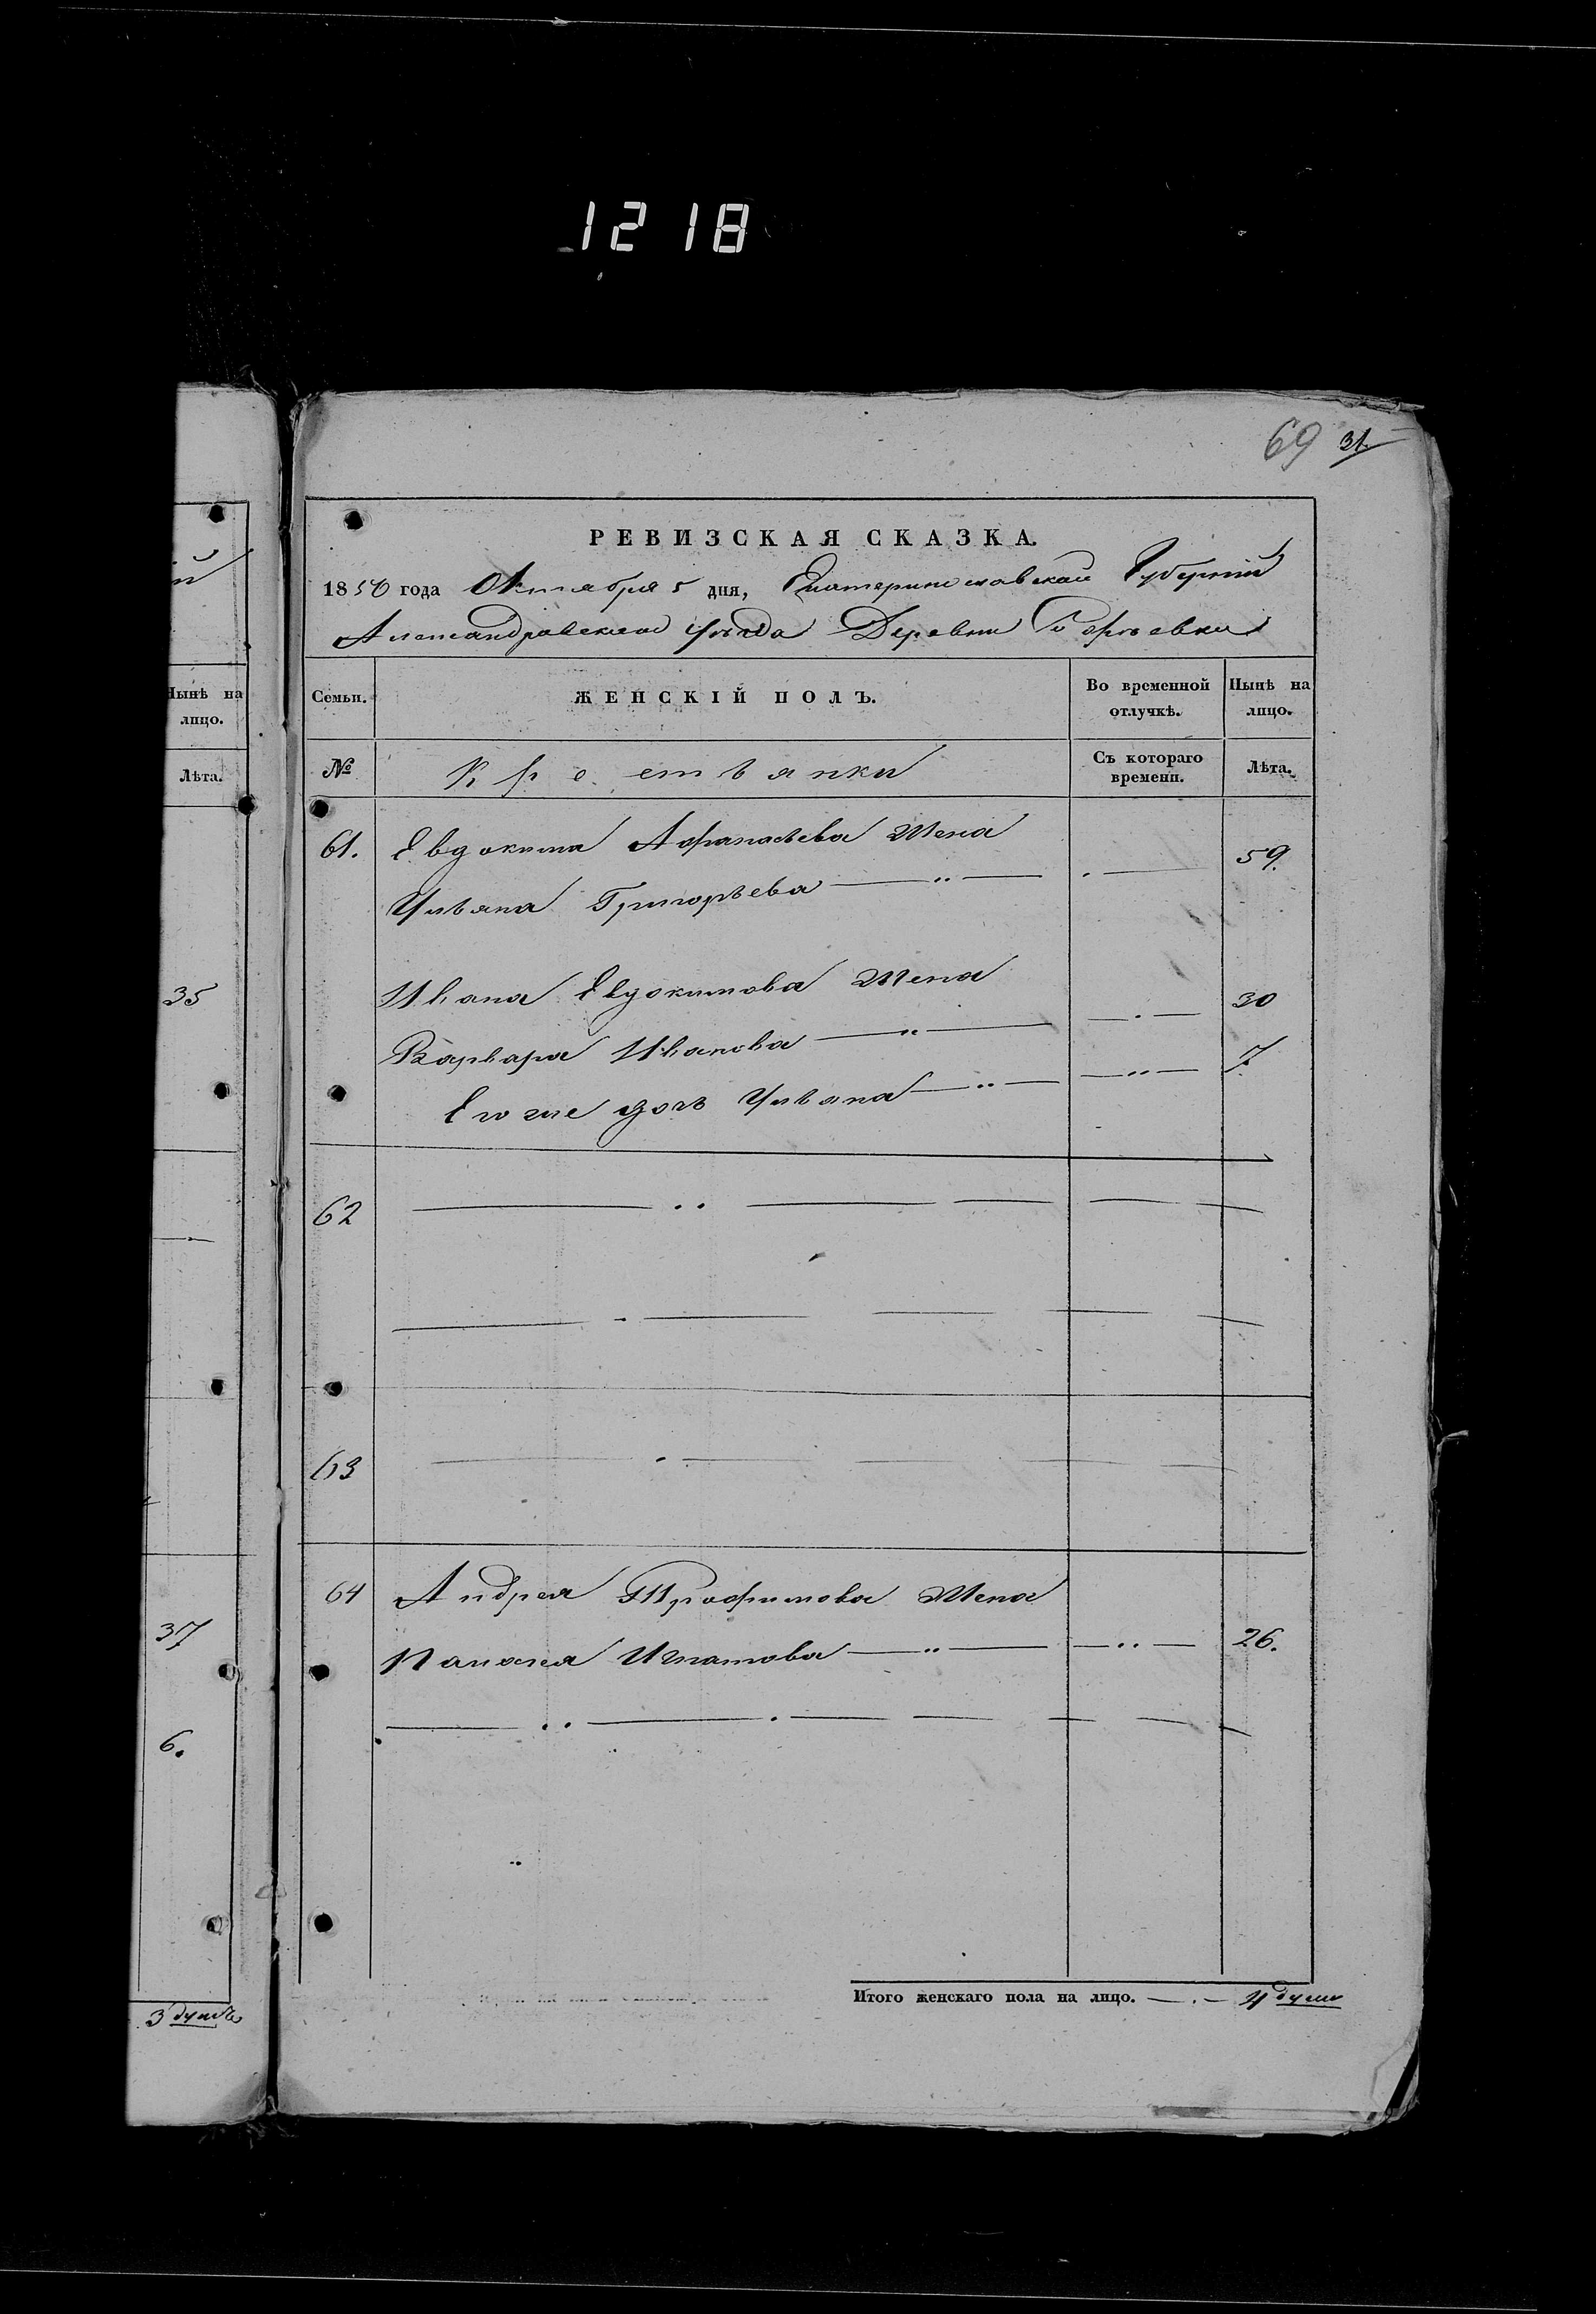 1218
69 31.
РЕВИЗСКАЯ СКАЗКА.
1850 года Октября 5 дня, Екатеринославской Губерніи
Александровского уѣзда Деревни
Нынѣ на
лицо.
Лѣта.
35
37
6.
3 душъ
Семьи.
ЖЕНСКІЙ ПОЛЪ.
Во временной
отлучкѣ.
Нынѣ на
лицо.
№
Крестьянки
Съ котораго
времени.
Лѣта.
61. Евдокима Афанасьева Жена
Ульяна Григорьева — „ — 59.
Ивана Евдокимова Жена
Варвара Иванова — „ — 30
Его же дочь Ульяна — „ — 7.
62
63
64 Андрея Трофимова Жена
Пелагея Игнатова — „ — 26.
Итого женскаго пола на лицо. — 4 души